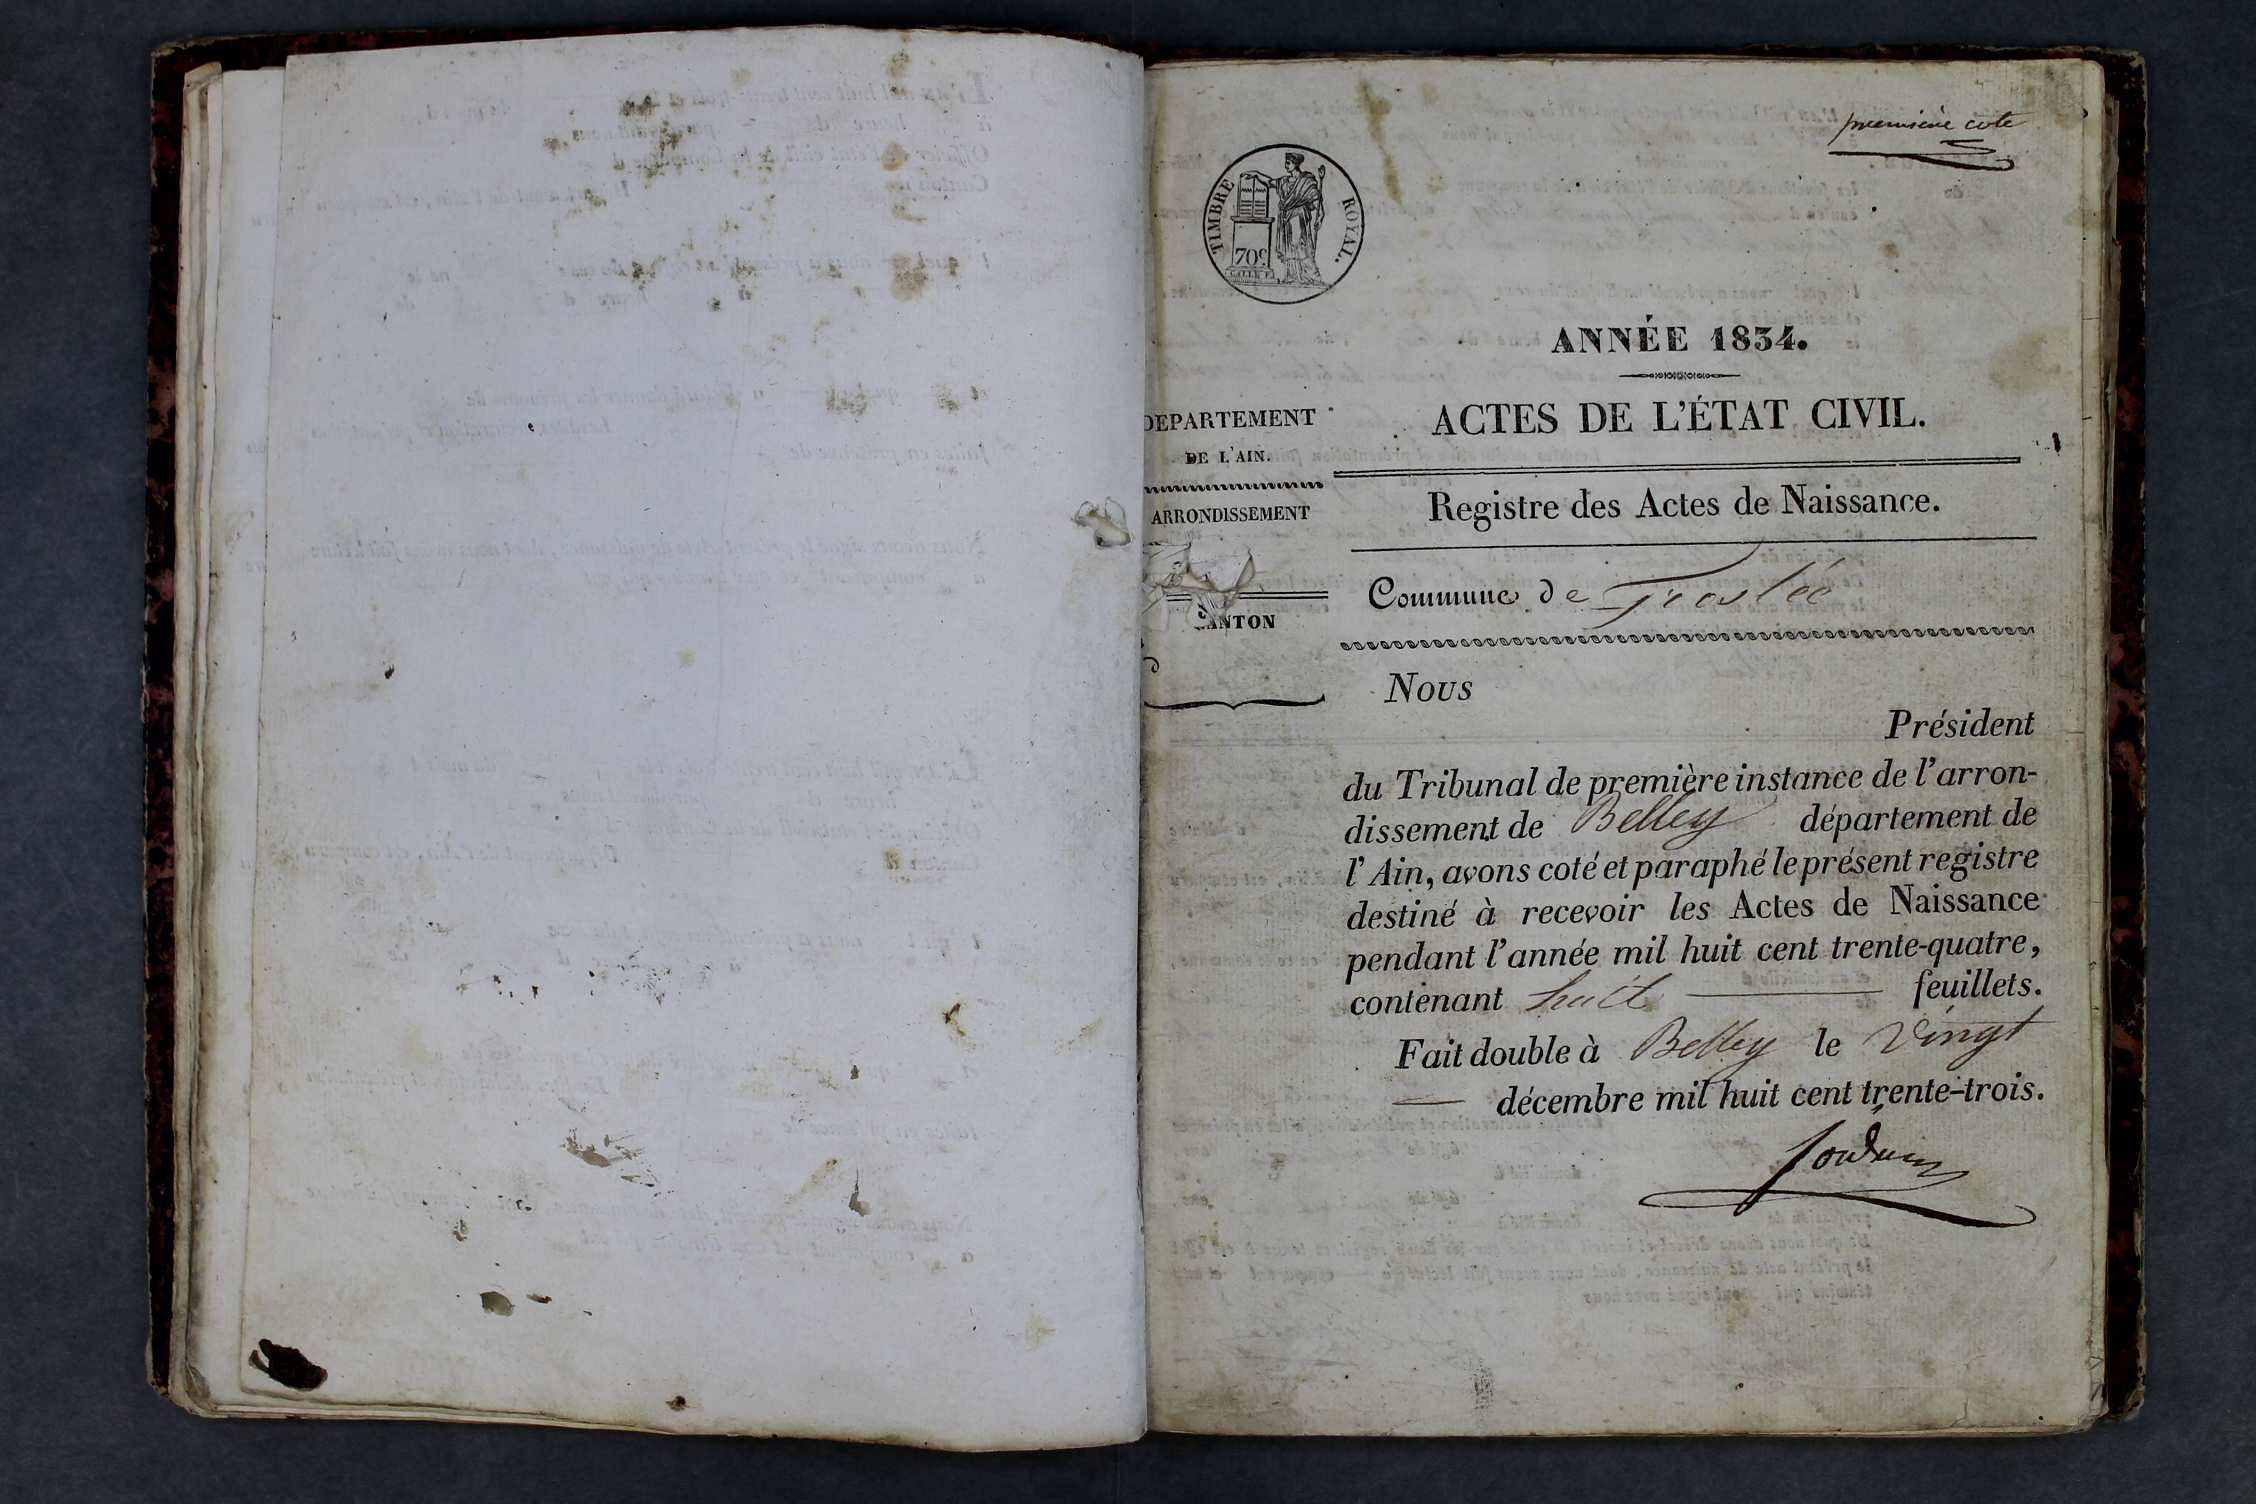 première cote
TIMBRE ROYAL.
70c
ANNÉE 1834.
DEPARTEMENT
DE L'AIN.
ARRONDISSEMENT
CANTON
ACTES DE L'ÉTAT CIVIL.
Registre des Actes de Naissance.
Commune de
Nous
Président
du Tribunal de première instance de l'arron-
dissement de Belley département de
l'Ain, avons coté et paraphé le présent registre
destiné à recevoir les Actes de Naissance
pendant l'année mil huit cent trente-quatre,
contenant huit feuillets.
Fait double à Belley le Vingt
décembre mil huit cent trente-trois.